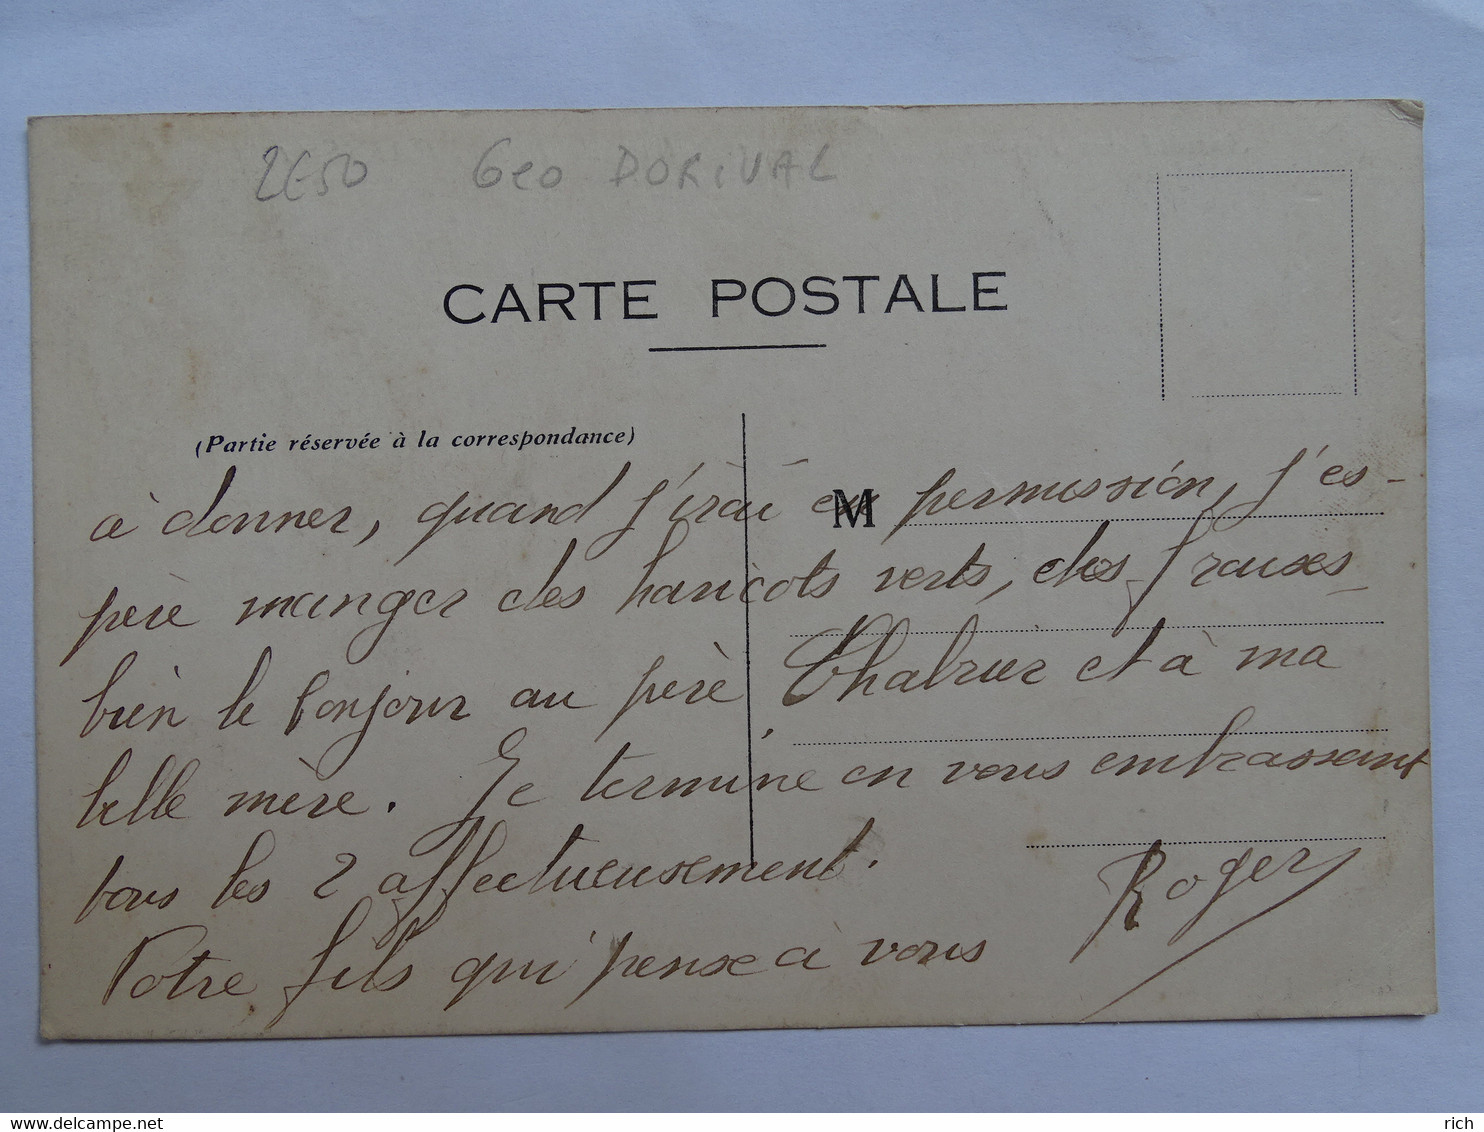 2E50 Geo DORIVAL
CARTE POSTALE
(Partie réservée à la correspondance)
M
à donner, quand j'irai en permission, j'es-
père manger des haricots verts, des fraises
bien le bonjour au père Chabrier et à ma
belle mère. Je termine en vous embrassant
tous les 2 affectueusement.
Votre fils qui pense à vous
Roger
www.delcampe.net
rich